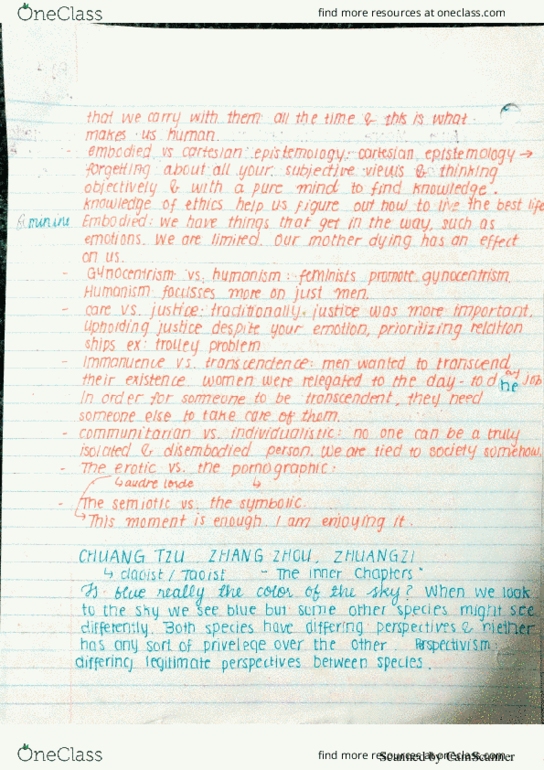 OneClass
find more resources at oneclass.com
that we carry with them all the time & this is what
makes us human.
embodied vs cartesian epistemology: cartesian epistemology →
forgetting about all your subjective views & thinking
objectively & with a pure mind to find knowledge.
knowledge of ethics help us figure out how to live the best life
Feminine Embodied: we have things that get in the way, such as
emotions. We are limited. Our mother dying has an effect
on us.
- Gynocentrism vs. humanism: feminists promote gynocentrism.
Humanism focusses more on just men.
- care vs. justice: traditionally, justice was more important.
upholding justice despite your emotion, prioritizing relation
ships ex: trolley problem
- Immanuence vs. transcendence: men wanted to transcend
their existence. women were relegated to the day-to day job
he
In order for someone to be transcendent, they need
someone else to take care of them.
- communitarian vs. individualistic: no one can be a truly
isolated & disembodied person. we are tied to society somehow.
- The erotic vs. the pornographic:
↳ audre lorde ↳
- The semiotic vs. the symbolic.
→ This moment is enough. I am enjoying it.
CHUANG TZU, ZHANG ZHOU, ZHUANGZI
↳ daoist / Taoist - "The Inner Chapters"
Is blue really the color of the sky? When we look
to the sky we see blue but some other species might see
differently. Both species have differing perspectives & niether
has any sort of privelege over the other. Perspectivism:
differing legitimate perspectives between species.
OneClass
find more resources at oneclass.com
Scanned by CamScanner